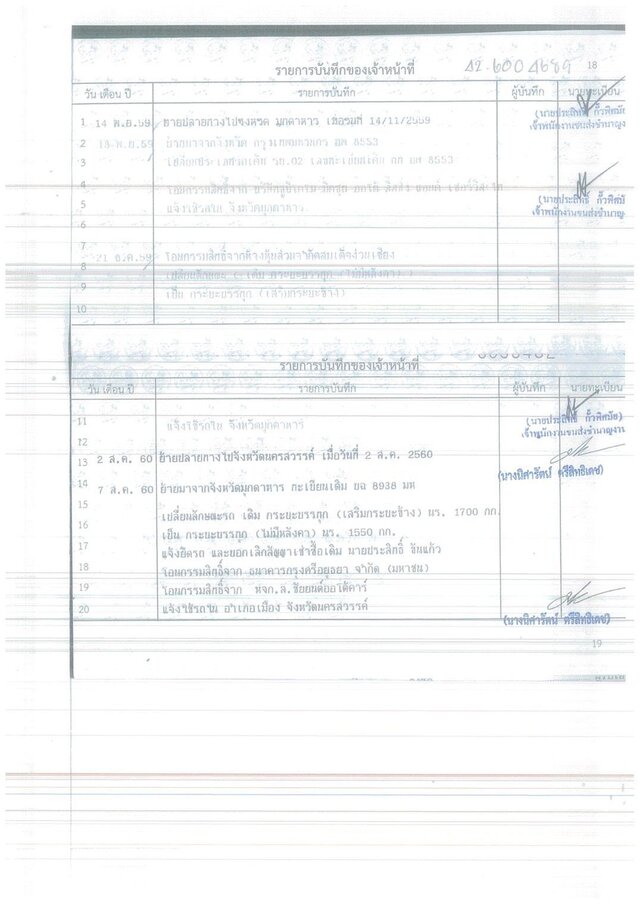 รายการบันทึกของเจ้าหน้าที่ 42-6004689 18
วัน เดือน ปี รายการบันทึก ผู้บันทึก นายทะเบียน
1 14 พ.ย.59 ย้ายปลายทางไปจังหวัด มุกดาหาร เมื่อวันที่ 14/11/2559
(นายประสิทธิ์ กั้วพิศมัย
เจ้าพนักงานขนส่งชำนาญง
2 18 พ.ย.59 ย้ายมาจากจังหวัด กรุงเทพมหานคร 8553
3 เปลี่ยนประเภทเดิม รย.02 เลขทะเบียนเดิม 8553
4 โอนกรรมสิทธิ์จาก
(นายประสิทธิ์ กั้วพิศมัย
5 แจ้งใช้รถใน จังหวัดมุกดาหาร
เจ้าพนักงานขนส่งชำนาญ
6
7 21 59 โอนกรรมสิทธิ์จากห้างหุ้นส่วนจำกัดสมเด็จง่วนเชียง
8 เปลี่ยนลักษณะ เดิม กระบะบรรทุก (ไม่มีหลังคา)
9 เป็น กระบะบรรทุก (เสริมกระบะข้าง)
10
รายการบันทึกของเจ้าหน้าที่
วัน เดือน ปี รายการบันทึก ผู้บันทึก นายทะเบียน
11 แจ้งใช้รถใน จังหวัดมุกดาหาร
(นายประสิทธิ์ กั้วพิศมัย)
เจ้าพนักงานขนส่งชำนาญงาน
12
13 2 ส.ค. 60 ย้ายปลายทางไปจังหวัดนครสวรรค์ เมื่อวันที่ 2 ส.ค. 2560
(นางนิศารัตน์ ศรีสิทธิเดช)
14 7 ส.ค. 60 ย้ายมาจากจังหวัดมุกดาหาร ทะเบียนเดิม บฉ 8938 มห
15 เปลี่ยนลักษณะรถ เดิม กระบะบรรทุก (เสริมกระบะข้าง) นร. 1700 กก.
16 เป็น กระบะบรรทุก (ไม่มีหลังคา) นร. 1550 กก.
17 แจ้งยึดรถ และบอกเลิกสัญญาเช่าซื้อเดิม นายประสิทธิ์ ขันแก้ว
18 โอนกรรมสิทธิ์จาก ธนาคารกรุงศรีอยุธยา จำกัด (มหาชน)
19 โอนกรรมสิทธิ์จาก หจก.ส.ชัยยนต์ออโต้คาร์
20 แจ้งใช้รถใน อำเภอเมือง จังหวัดนครสวรรค์
(นางนิศารัตน์ ศรีสิทธิเดช)
19